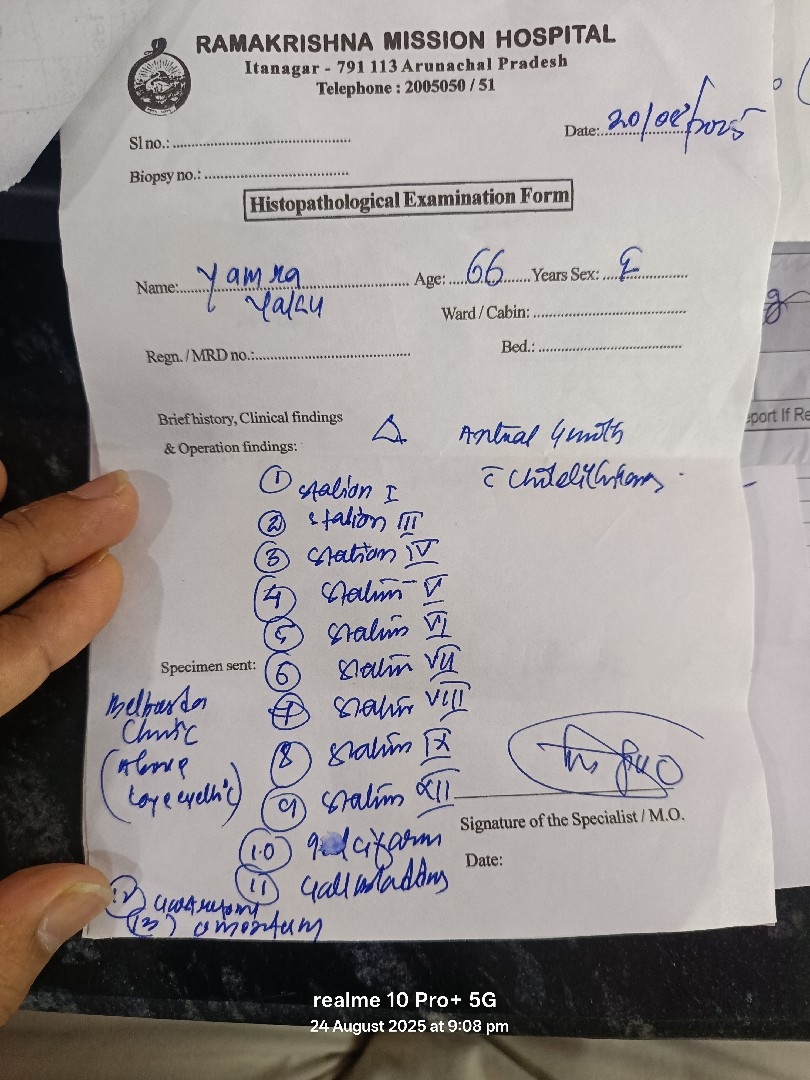 RAMAKRISHNA MISSION HOSPITAL
Itanagar - 791 113 Arunachal Pradesh
Telephone : 2005050 / 51
Sl no.:
Date: 20/08/2025
Biopsy no.:
Histopathological Examination Form
Name: Yamra
Age: 66 Years Sex: F
Ward / Cabin:
Regn. / MRD no.:
Bed.:
Brief history, Clinical findings
& Operation findings:
△ Antral Growth
c̄
① Station I
② Station III
③ Station IV
④ Station V
⑤ Station VI
Specimen sent:
⑥ Station VII
⑦ Station VIII
⑧ Station IX
⑨ Station XII
Clinic
(Above
10
11 Gall bladder
12
13) omentum
Signature of the Specialist / M.O.
Date:
port If Re
realme 10 Pro+ 5G
24 August 2025 at 9:08 pm